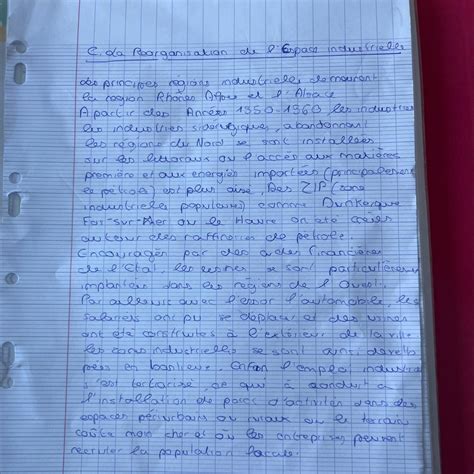 C. La Réorganisation de l'Espace industrielle
Les principales régions industrielles demeurent
la région Rhônes Alpes et l'Alsace
A partir des Années 1950-1960 les industries
les industries sidérurgiques, abandonnant
les régions du Nord se sont installées
sur les littoraux ou l'accès aux matières
première et aux énergies importées (principalement
le pétrole) est plus aisé, Des ZIP (zone
industrielles populaires) comme Dunkerque
Fos-sur-Mer ou le Havre on été créés
autour des raffineries de pétrole.
Encouragées par des aides financières
de l'Etat, les usines se sont particulièrement
implantées dans les régions de l'Ouest.
Par ailleurs avec l'essor l'automobile, les
salariés ont pu se déplacer et des usines
ont été construites à l'extérieur de la ville
les zones industrielles se sont ainsi dévelop
pées en banlieue. Enfin l'emploi industriel
s'est tertiarisé, ce qui à conduit à
l'installation de parcs d'activités dans des
espaces périurbains ou ruraux ou le terrain
coûte moin cher et ou les entreprises peuvent
recruter la population locale.